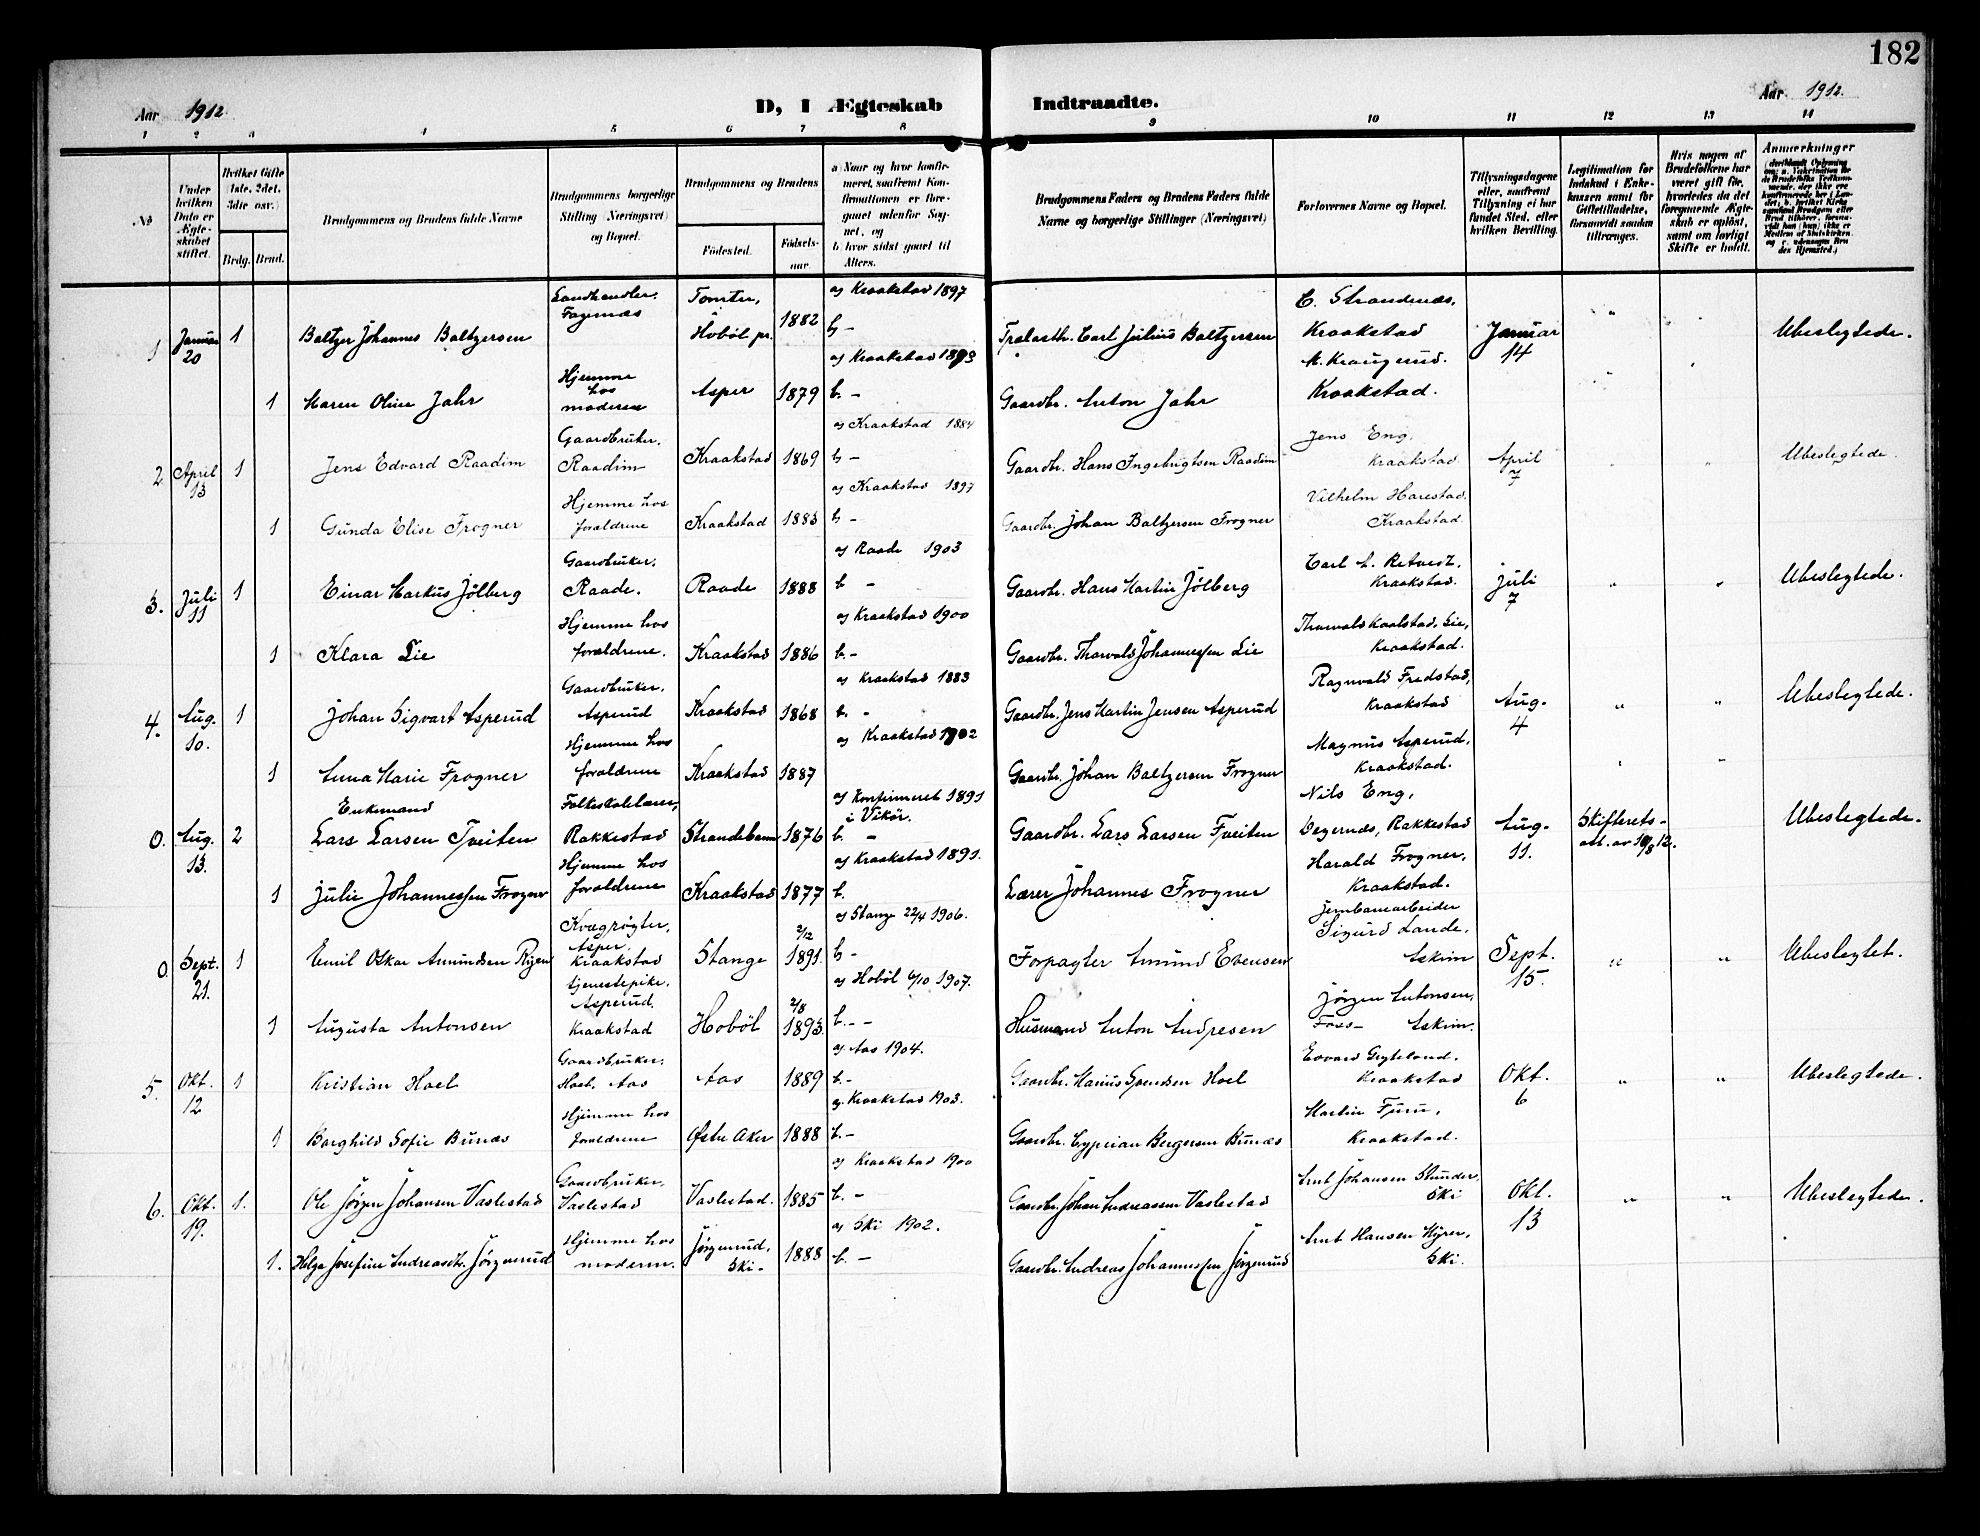 182
Aar 1912. D, I Ægteskab Indtraadte. Aar 1912.
1 2 3 4 5 6 7 8 9 10 11 12 13 14
No
Under hvilken Dato er Ægteskabet stiftet.
Hvilket Gifte (1ste, 2det, 3die osv.)
Brdg. Brud.
Brudgommens og Brudens fulde Navne
Brudgommens borgerlige Stilling (Næringsvei) og Bopæl.
Brudgommens og Brudens
Fødested. Fødselsaar.
a) Naar og hvor konfirmeret, saafremt Konfirmationen er foregaaet udenfor Sognet, og
b) hvor sidst gaaet til Alters.
Brudgommens Faders og Brudens Faders fulde Navne og borgerlige Stillinger (Næringsvei)
Forlovernes Navne og Bopæl.
Tillysningsdagene eller, saafremt Tillysning ei har fundet Sted, efter hvilken Bevilling.
Legitimation for Indskud i Enkekassen samt for Giftetilladelse, forsaavidt saadan tiltrænges.
Hvis nogen af Brudefolkene har været gift før, hvorledes da det foregaaende Ægteskab er opløst, samt om lovligt Skifte er holdt.
Anmærkninger
1 Januar 20 1 Baltzer Johannes Baltzersen Landhandler. Fagernæs Tomter, Hobøl pr. 1882 a) Kraakstad 1897 b) - Carl Julius Baltzersen C. Strandenæs, Kraakstad Januar 14 " " Ubeslegtede.
1 Maren Oline Jahr Hjemme hos moderen Asper 1879 a) Kraakstad 1893 b. - Gaardbr. Anton Jahr M. Kraugerud. Kraakstad.
2 April 13 1 Jens Edvard Raadim Gaardbruker. Raadim Kraakstad 1869 a) Kraakstad 1884 b - Gaardbr. Hans Ingebrigtsen Raadim Jens Eng. Kraakstad April 7 " " Ubeslegtede.
1 Gunda Elise Frogner Hjemme hos forældrene Kraakstad 1883 a) Kraakstad 1897 b - Gaardbr. Johan Baltzersen Frogner Vilhelm Harestad. Kraakstad.
3. Juli 11 1 Einar Markus Jølberg Gaardbruker. Raade. Raade 1888 a) Raade 1903 b - Gaardbr. Hans Martin Jølberg Kraakstad. Juli 7 " " Ubeslegtede.
1 Klara Lie Hjemme hos forældrene. Kraakstad 1886 a) Kraakstad 1900 b. - Gaardbr. Thorvald Johannessen Lie Thorvald Kaalstad, Lie, Kraakstad.
4. Aug. 10. 1 Johan Sigvart Asperud Gaardbruker. Asperud Kraakstad 1868 a) Kraakstad 1883 b. - Gaardbr. Jens Martin Jensen Asperud Ragnvald Fredstad, Kraakstad Aug. 4 " " Ubeslegtede.
1 Anna Marie Frogner Hjemme hos forældrene Kraakstad 1887 a) Kraakstad 1902 Gaardbr. Johan Baltzersen Frogner Magnus Asperud, Kraakstad. " "
0. Aug. 13. 2 Enkemand Lars Larsen Tveiten Folkeskolelærer, Rakkestad Strandebarm 1876 a) Konfirmeret 1891 i Vikør. b. - Gaardbr. Lars Larsen Tveiten Nils Eng, Degernæs, Rakkestad Aug. 11. Skifterets- att. av 10/8 12. Ubeslegtede.
1 Julie Johannessen Frogner Hjemme hos forældrene Kraakstad 1877 a) Kraakstad 1891. b. Lærer Johannes Frogner Harald Frogner, Kraakstad.
0. Sept. 21. 1 Emil Oskar Amundsen Ryen Kvægrøgter, Asper, Kraakstad Stange 2/12 1891. a) Stange 22/4 1906. b - Forpagter Amund Evensen Jernbanearbeider Sigurd Lande, Askim Sept. 15. " " Ubeslegtet.
1 Augusta Antonsen tjenestepike. Asperud. Kraakstad Hobøl 2/8 1893. a) Hobøl 6/10 1907. b. - - Husmand Anton Andresen Jørgen Antonsen, Foss - Askim.
5. Okt. 12 1 Kristian Hoel Gaardbruker. Hoel, Aas Aas 1889 a) Aas 1904. b. - Gaardbr. Marius Svendsen Hoel Edvard Gryteland. Kraakstad Okt. 6 " " Ubeslegtede.
1 Borghild Sofie Bunæs Hjemme hos forældrene Østre Aker 1888 a. Kraakstad 1903. b. - Gaardbr. Cyprian Bergersen Bunæs Martin Furu, Kraakstad.
6. Okt. 19. 1. Ole Jørgen Johansen Vaslestad Gaardbruker. Vaslestad Vaslestad. 1885 a) Kraakstad 1900 b. - Gaardbr. Johan Andreassen Vaslestad Arnt Johansen Stunder Ski Okt. 13 " " Ubeslegtede.
1. Helga Josefine Andreasdtr. Jørgenrud Hjemme hos moderen. Jørgenrud, Ski - 1888 a) Ski 1902. b. - Gaardbr. Andreas Johannessen Jørgenrud Arnt Hansen Myrer, Ski.